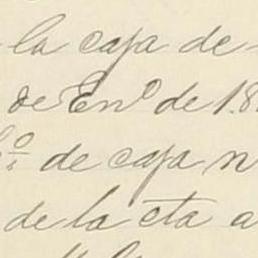 la caja de
de En.º de 18
º de caja n
de la cta a